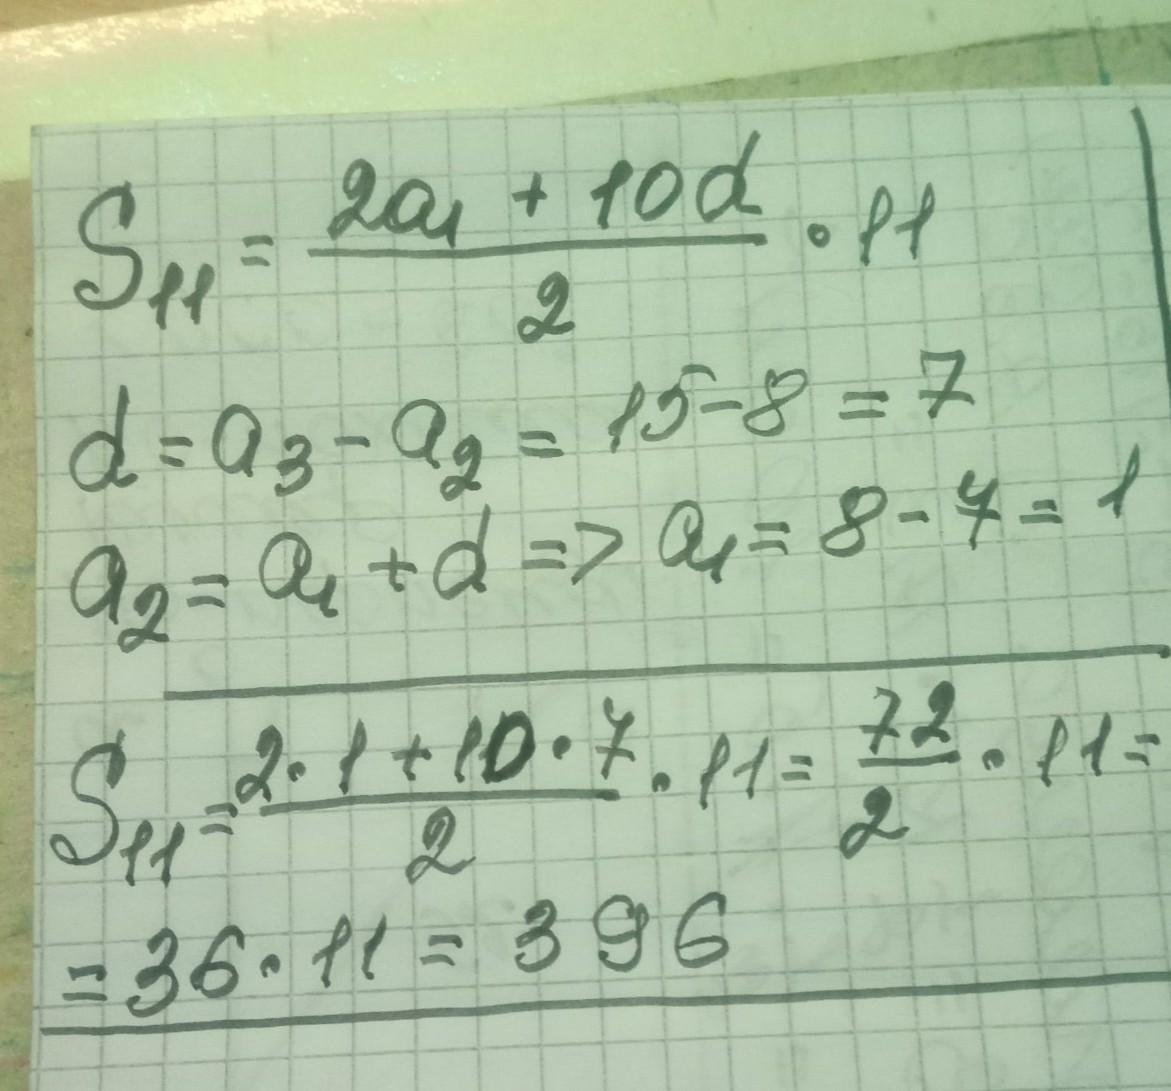 S₁₁ = (2a₁ + 10d)/2 · 11
d = a₃ - a₂ = 15 - 8 = 7
a₂ = a₁ + d => a₁ = 8 - 7 = 1
S₁₁ = (2 · 1 + 10 · 7)/2 · 11 = 72/2 · 11 =
= 36 · 11 = 396